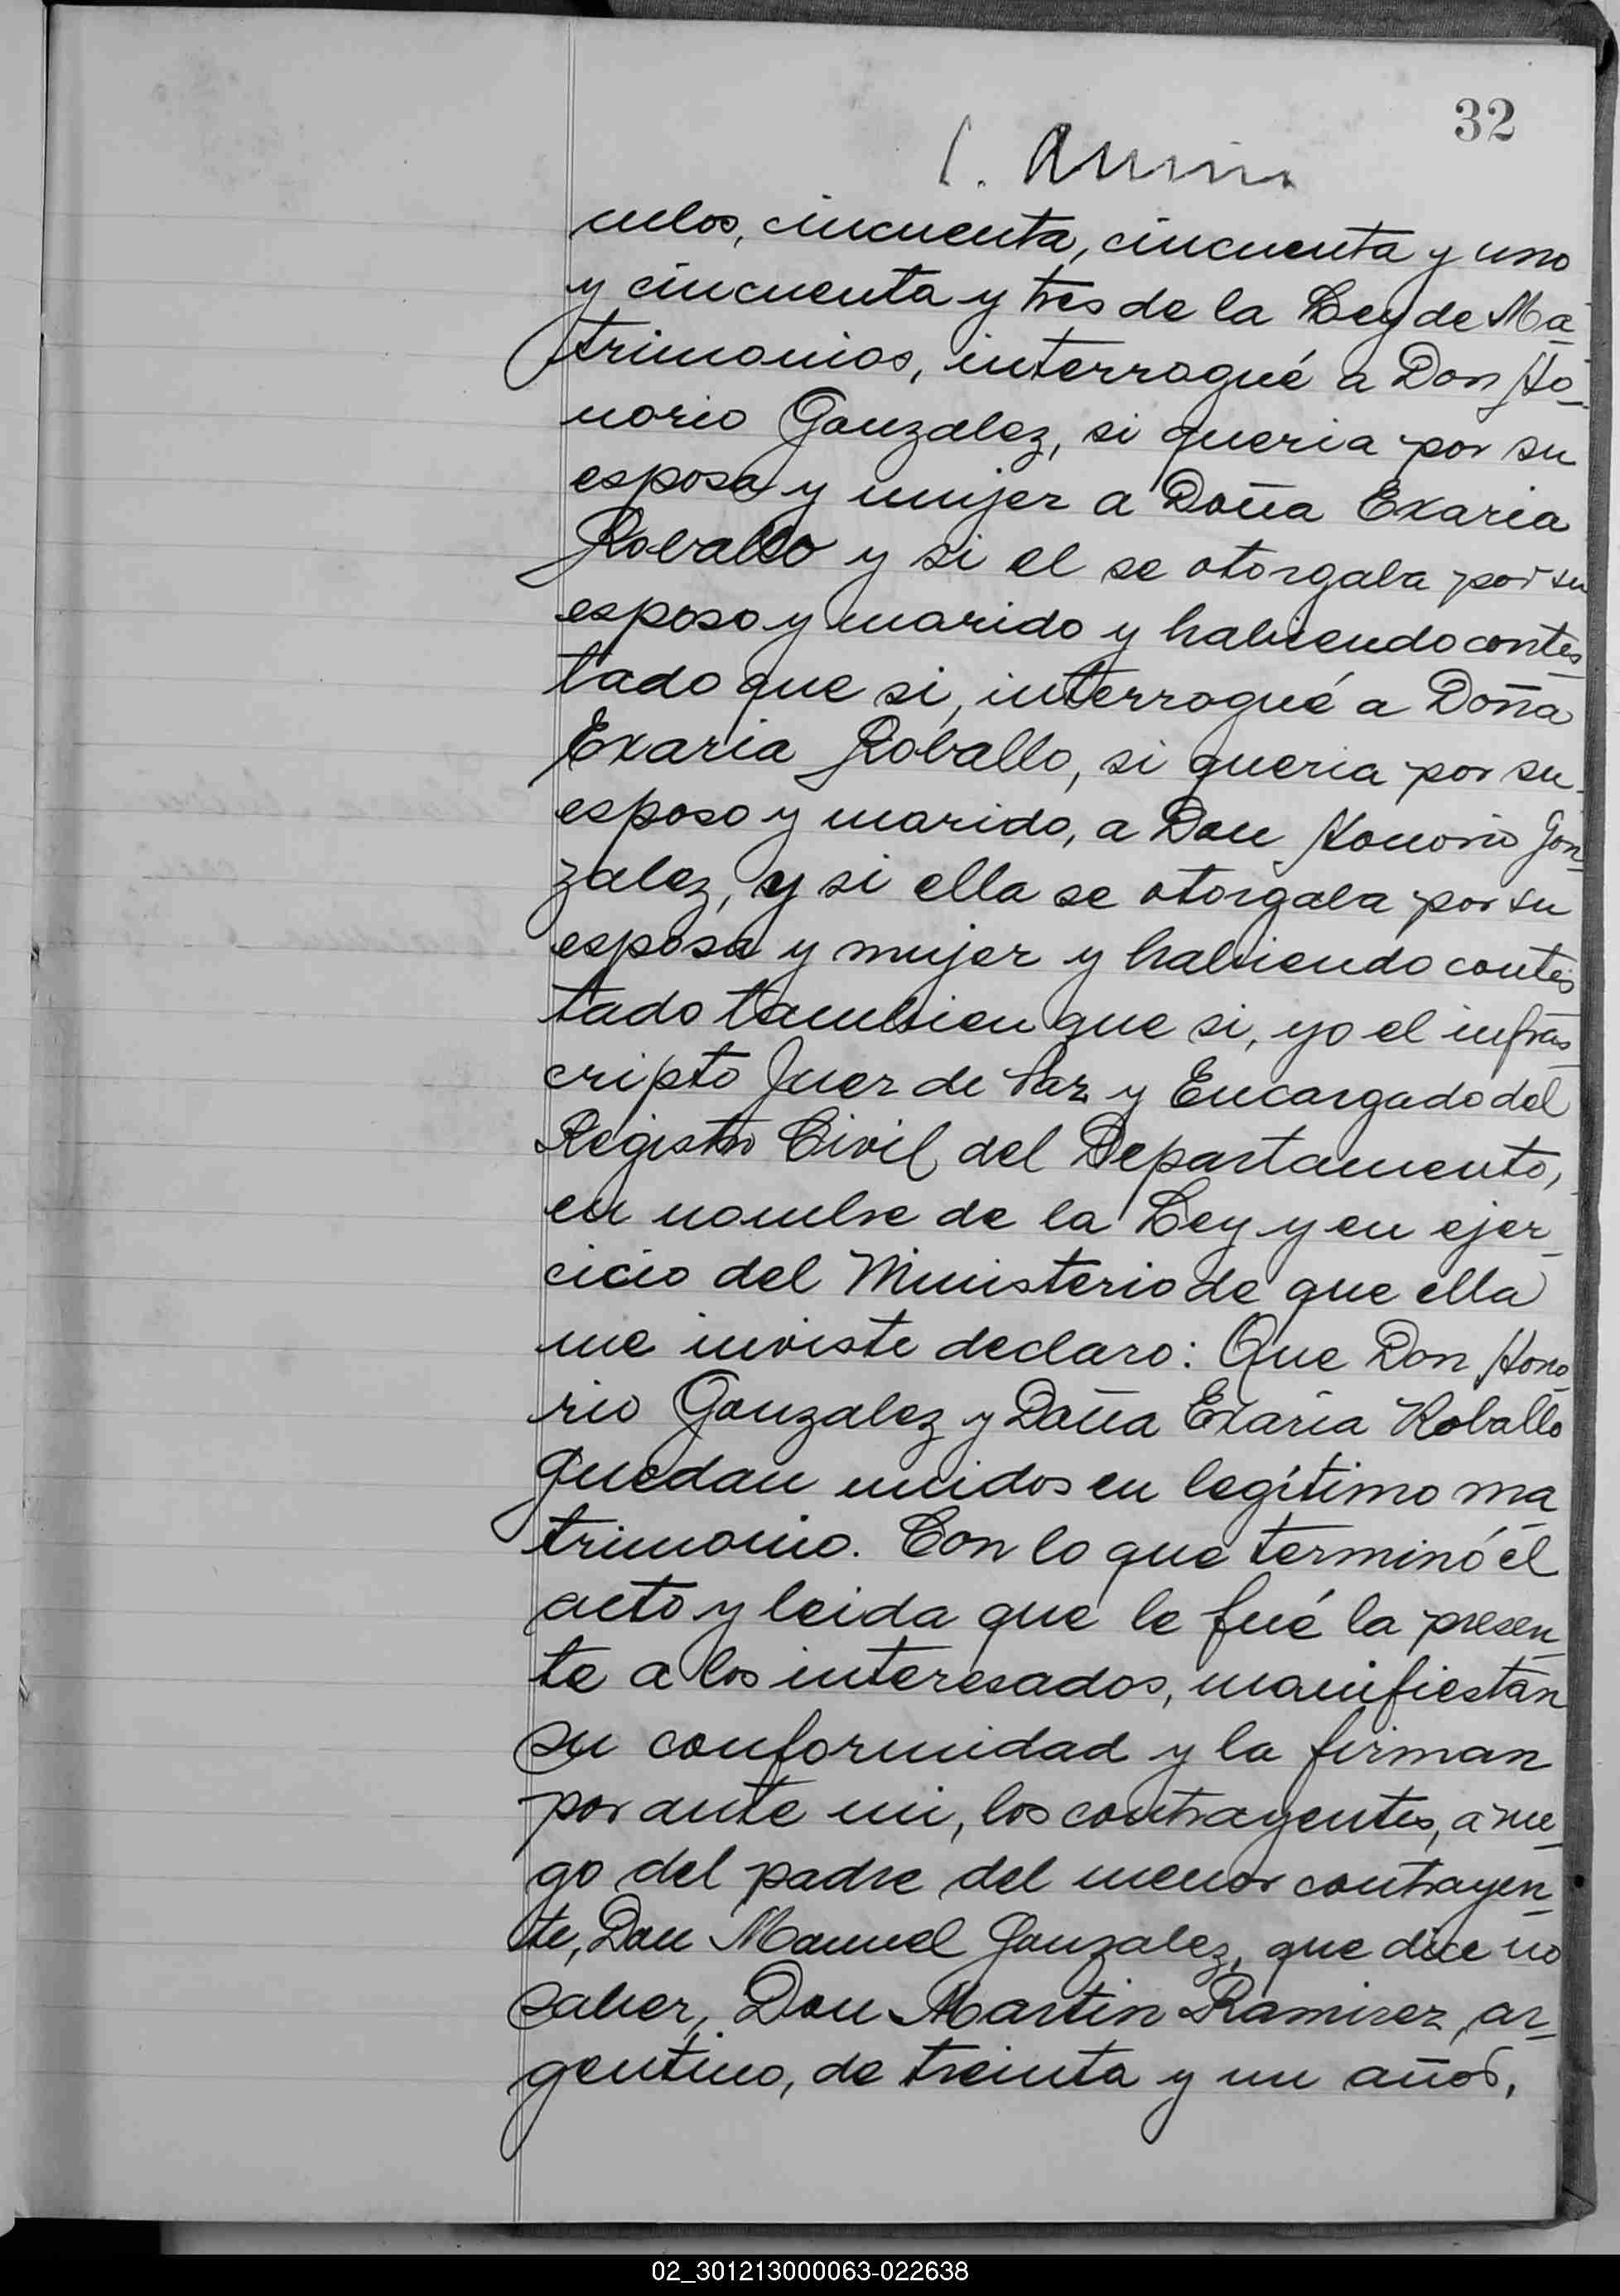 32
culos, cincuenta, cincuenta y uno
y cincuenta y tres de la Ley de Ma
trimonios, interrogué a Don Ho_
norio Gonzalez, si queria por su
esposa y mujer a Doña Exaria
Roballo y si el se otorgaba por su
esposo y marido y habiendo contes
tado que si, interrogué a Doña
Exaria Roballo, si queria por su
esposo y marido, a Don Honorio Gon
zalez, y si ella se otorgaba por su
esposa y mujer y habiendo contes
tado tambien que si, yo el infras
cripto Juez de Paz y Encargado del
Registro Civil del Departamento,
en nombre de la Ley y en ejer_
cicio del Ministerio de que ella
me inviste declaro: Que Don Hono
rio Gonzalez y Doña Exaria Roballo
quedan unidos en legítimo ma
trimonio. Con lo que terminó el
acto y leida que le fué la presen_
te a los interesados, manifiestan
su conformidad y la firman
por ante mi, los contrayentes, a rue_
go del padre del menor contrayen_
te, Don Manuel Gonzalez, que dice no
saber, Don Martin Ramirez, ar_
gentino, de treinta y un años,
02_301213000063-022638